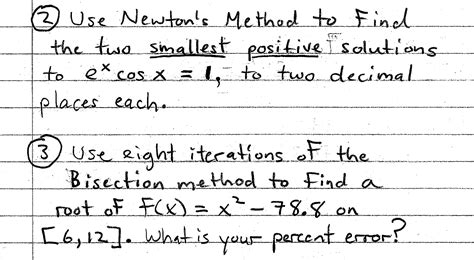 ② Use Newton's Method to Find
the two smallest positive solutions
to eˣ cos x = 1, to two decimal
places each.
③ Use eight iterations of the
Bisection method to find a
root of F(x) = x² - 78.8 on
[6,12]. What is your percent error?